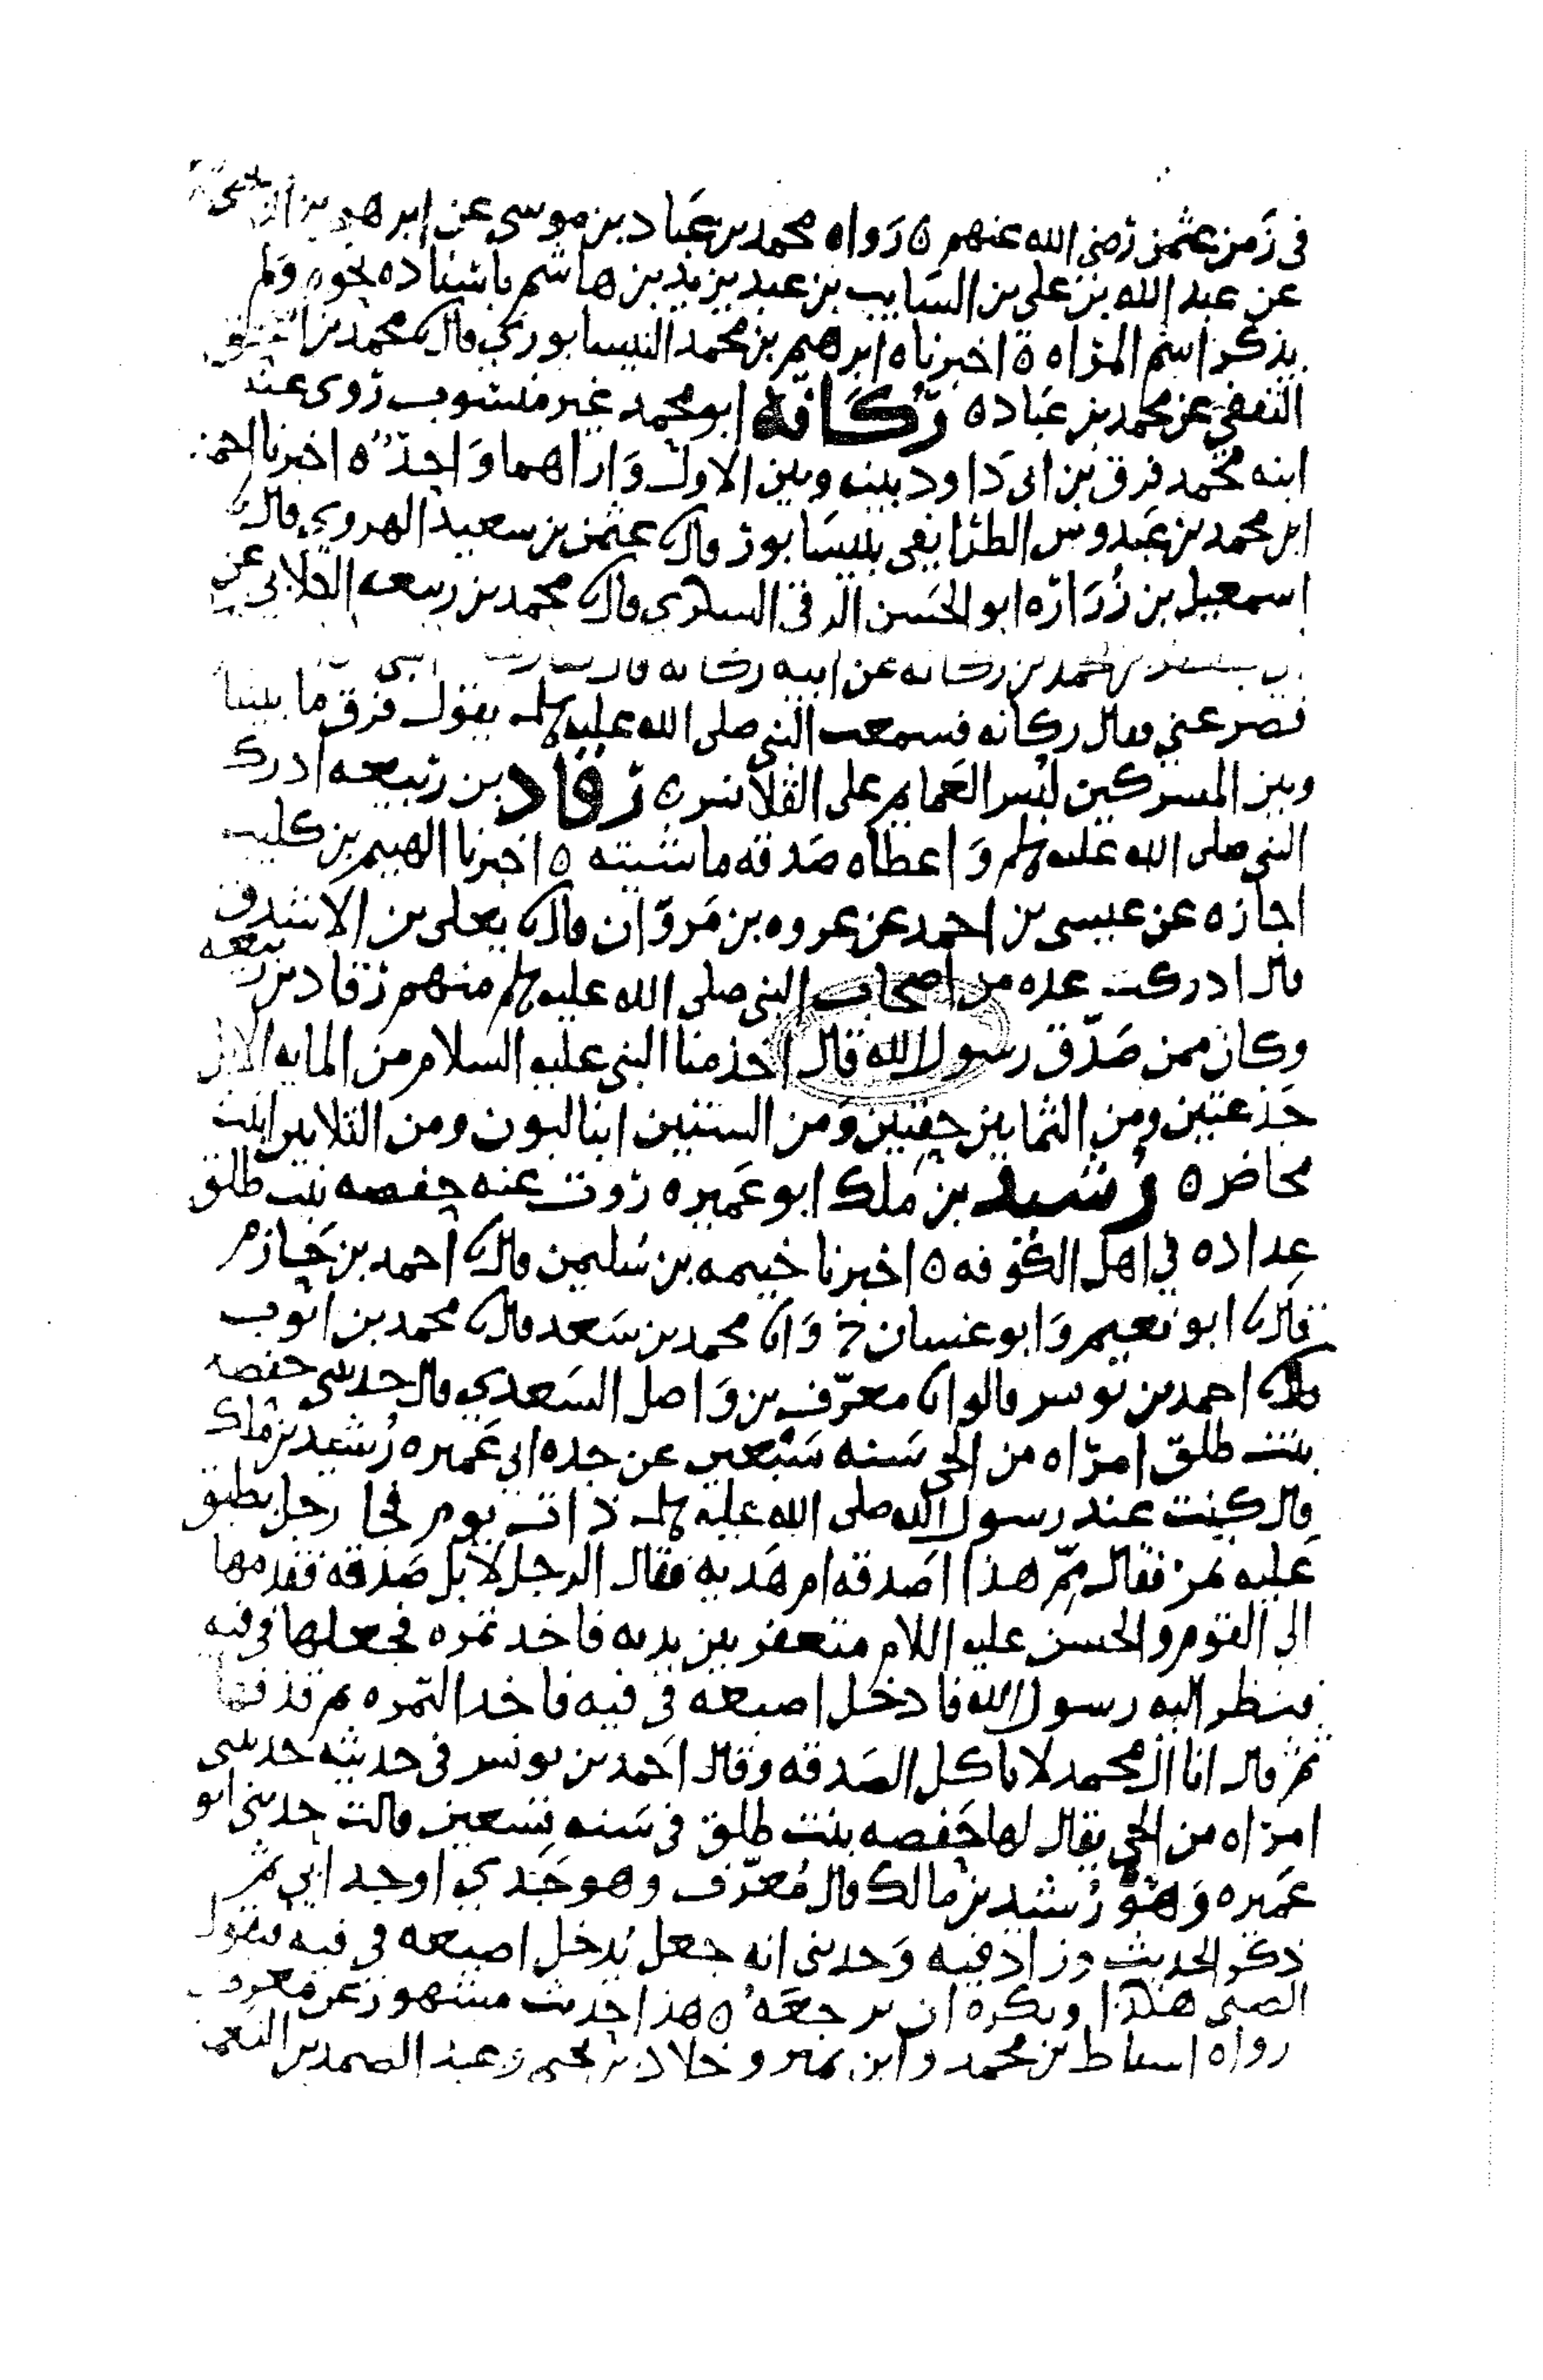 في زمن عثمن رضي الله عنهم ه رواه محمد بن عباد بن موسى عن ابرهيم بن
عن عبد الله بن علي بن السايب بن عبد يزيد بن هاشم باسناده نحوه ولم
يذكر اسم المراه ه اخبرناه ابرهيم بن محمد النيسابوري قال نا محمد بن اسحق
الثقفي عن محمد بن عباد ه ركانة ابو محمد غير منسوب روى عنه
ابنه محمد فرق بن ابي داود بينه وبين الاول واراهما واحدا ه اخبرنا احمد
ابن محمد بن عبدوس الطرايفي بنيسابور قال نا عثمن بن سعيد الهروي قال نا
اسمعيل بن زراره ابو الحسن الرقي السكري قال نا محمد بن ربيعه الكلابي عن
محمد بن ركانه عن ابيه ركانه قال صارعت النبي
فصرعني وقال ركانه فسمعت النبي صلى الله عليه وسلم يقول فرق ما بيننا
وبين المشركين لبس العمايم على القلانس ه رقاد بن ربيعه ادرك
النبي صلى الله عليه وسلم واعطاه صدقه ماشيته ه اخبرنا الهيثم بن كليب
اجازه عن عيسى بن احمد عن عروه بن مروان قال نا يعلى بن الاشدق
قال ادركت عده من اصحاب النبي صلى الله عليه وسلم منهم رقاد بن ربيعه
وكان ممن صدق رسول الله قال اخذ منا النبي عليه السلام من المايه الابل
جذعتين ومن الثمانين حقتين ومن الستين ابنتا لبون ومن الثلاثين ابنت
مخاض ه رشيد بن ملك ابو عميره روت عنه حفصه بنت طلق
عداده في اهل الكوفه ه اخبرنا خيثمه بن سليمن قال نا احمد بن حازم
قال نا ابو نعيم وابو غسان ح وانا محمد بن سعد قال نا محمد بن ايوب
قال نا احمد بن يونس قالوا نا معرف بن واصل السعدي قال حدثتني حفصه
بنت طلق امراه من الحي سنه تسعين عن جده ابي عميره رشيد بن ملك
قال كنت عند رسول الله صلى الله عليه وسلم ذات يوم فجا رجل بطبق
عليه تمر فقال مم هذا اصدقه ام هديه فقال الرجل لا بل صدقه فقدمها
الى القوم والحسن عليه السلام متعفر بين يديه فاخذ تمره فجعلها في فيه
فنظر اليه رسول الله فادخل اصبعه في فيه فاخذ التمره ثم قذفها
ثم قال انا ال محمد لا ناكل الصدقه وقال احمد بن يونس في حديثه حدثتني
امراه من الحي يقال لها حفصه بنت طلق في سنه تسعين قالت حدثني ابو
عميره وهو رشيد بن مالك قال معرف وهو جدي او جد ابي ثم
ذكر الحديث وزاد فيه وحدثني انه جعل يدخل اصبعه في فيه فيقول
الصبي هكذا ويكره ان يوجعه ه هذا حديث مشهور عن معرف
رواه اسباط بن محمد وابن نمير وخلاد بن يحيى وعبد الصمد بن النعمن